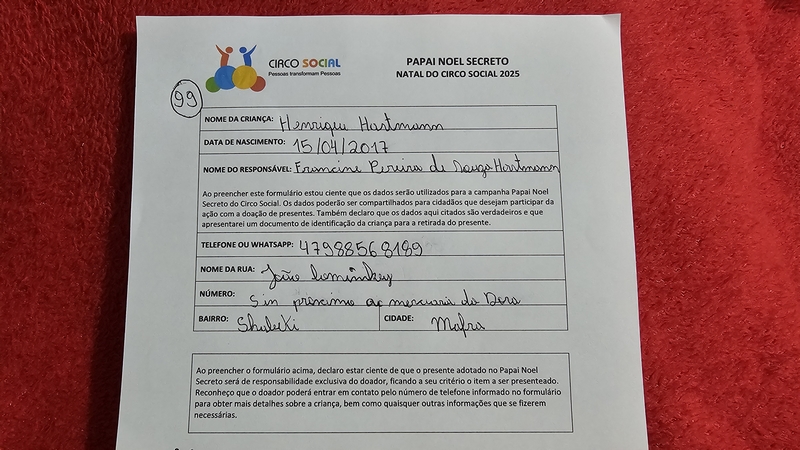 CIRCO SOCIAL
Pessoas transformam Pessoas
PAPAI NOEL SECRETO
NATAL DO CIRCO SOCIAL 2025
99
NOME DA CRIANÇA: Henrique Hartmann
DATA DE NASCIMENTO: 15/04/2017
NOME DO RESPONSÁVEL: Francine Pereira de Souza Hartmann
Ao preencher este formulário estou ciente que os dados serão utilizados para a campanha Papai Noel
Secreto do Circo Social. Os dados poderão ser compartilhados para cidadãos que desejam participar da
ação com a doação de presentes. Também declaro que os dados aqui citados são verdadeiros e que
apresentarei um documento de identificação da criança para a retirada do presente.
TELEFONE OU WHATSAPP: 47988568189
NOME DA RUA: João
NÚMERO: Sin próximo ao mercearia da Dora
BAIRRO: CIDADE: Mafra
Ao preencher o formulário acima, declaro estar ciente de que o presente adotado no Papai Noel
Secreto será de responsabilidade exclusiva do doador, ficando a seu critério o item a ser presenteado.
Reconheço que o doador poderá entrar em contato pelo número de telefone informado no formulário
para obter mais detalhes sobre a criança, bem como quaisquer outras informações que se fizerem
necessárias.